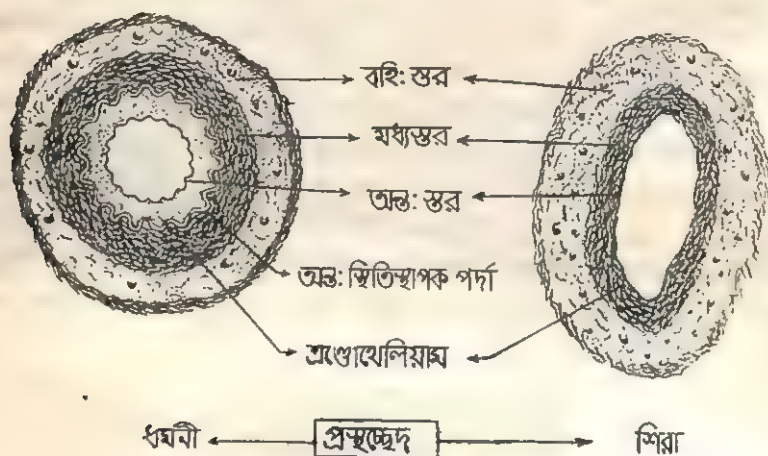 বহি: স্তর
মধ্যস্তর
অন্ত: স্তর
অন্ত: স্থিতিস্থাপক পর্দা
এণ্ডোথেলিয়াম
ধমনী প্রস্থচ্ছেদ শিরা